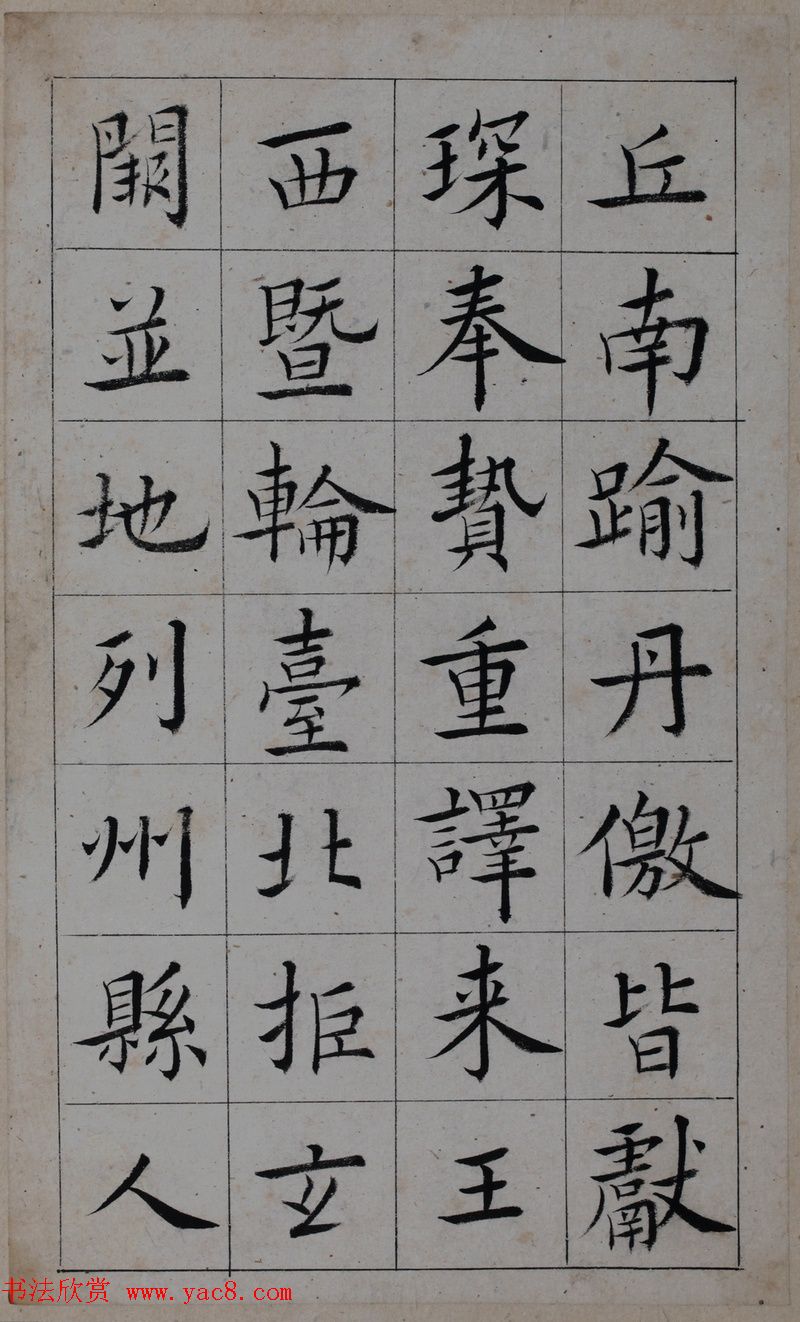 丘南踰丹儌皆獻
琛奉贄重譯来王
西暨輪臺北拒玄
闕並地列州縣人
书法欣赏 www.yac8.com